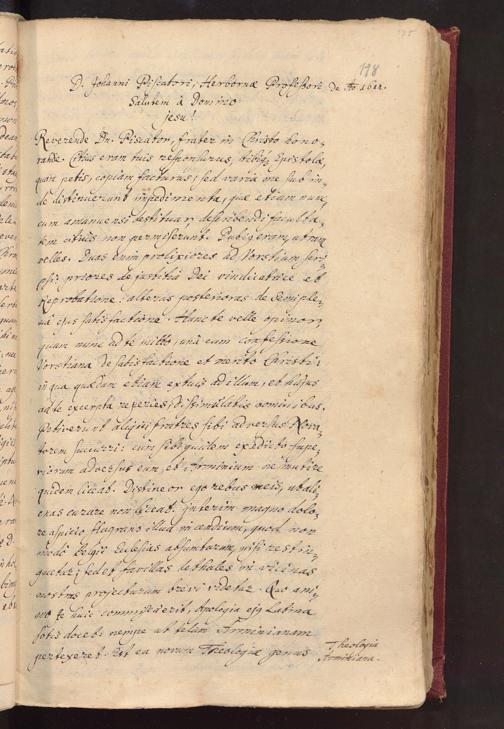 118
D. Johanni Piscatori, Herbornæ Professori de Ao 1612.
Salutem à Domino
Jesu!
Reverende Dn: Piscator, frater in Christo hono-
rande. Citius eram tuis responsurus, tibiq; Epistolæ,
quam petis, copiam facturus; sed varia me sub in-
de distinuerunt impedimenta, quæ etiam nunc,
cum amanuensi destituar, describendi faculta-
tem citius non permiserunt. Dubiq; eram, utram
velles. Duas enim prolixiores ad Vorstium scri-
psi: priores de justitia Dei vindicatrice et
Reprobatione: alteras posteriores de semiple-
na ejus satisfactione. Hanc te velle opinor,
quam nunc ad te mitto, unà cum confessione
Vorstiana de satisfactione et merito Christi:
in qua quædam etiam ex tuis ad illum, et illius
ad te excerpta reperies, dissimulatis nominibus.
Petiverunt aliqui fratres sibi adversus
succurri: cum sibi quidem ex edicto supe-
riorum adversus eum, et Arminium ne mutire
quidem liceat. Distineor ego rebus meis, ut ali-
enas curare non liceat. Interim magno dolo-
re aspicio illud incendium, quod non
modò Belgii Ecclesias absumturum, nisi restin-
guatur; sed et favillas lethales in vicinas
nostras projecturum brevi videtur. Quo ani-
mo te huic commiserit, Apologia ejus Latina
satis docet: nempe ut telam Arminianam
pertexeret. Est ea novum Theologiæ genus
Theologia
Arminiana.